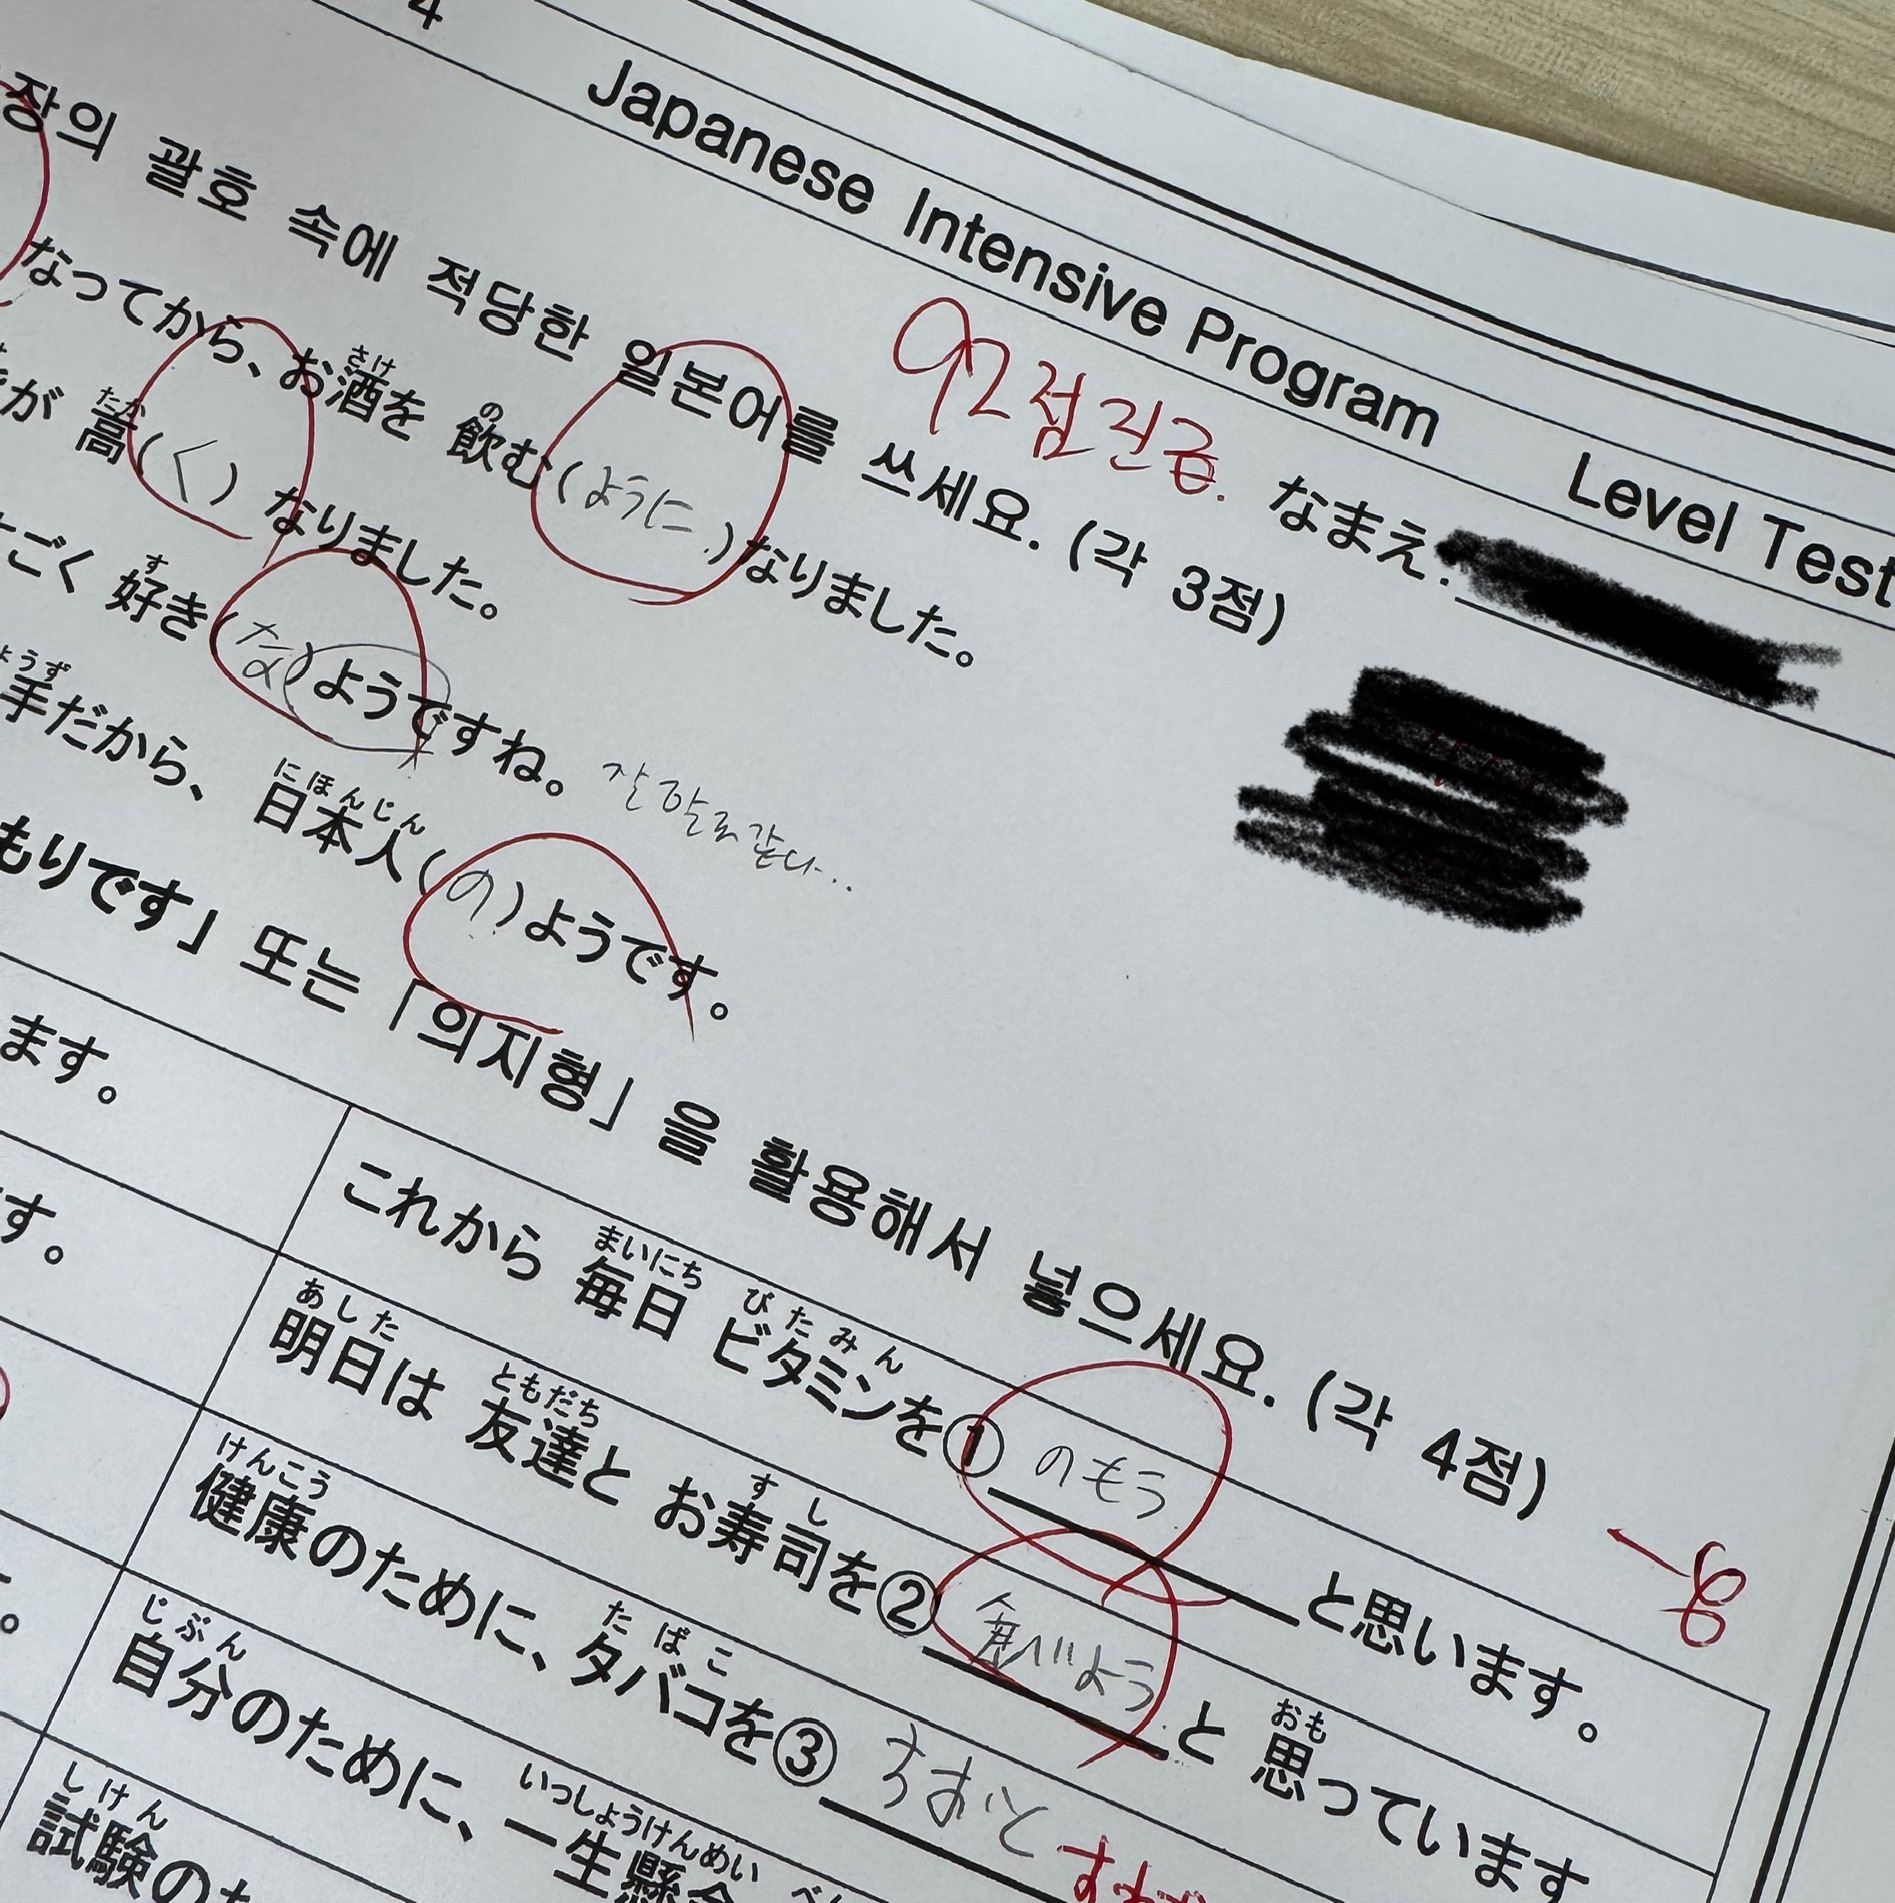 4
Japanese Intensive Program Level Test
92점 진급. なまえ:
장의 괄호 속에 적당한 일본어를 쓰세요. (각 3점)
なってから、お酒を 飲む(ように)なりました。
さけ の
が 高(く) なりました。
たか
ごく 好き(な)ようですね。
す
잘 모르겠다...
手だから、 日本人(の)ようです。
ょうず にほんじん
もりです」 또는 「의지형」 을 활용해서 넣으세요. (각 4점)
-8
ます。
これから 毎日 ビタミンを① のもう と思います。
まいにち びたみん
す。
明日は 友達と お寿司を② 食べよう と 思っています
あした ともだち すし おも
健康のために、タバコを③
けんこう たばこ
自分のために、一生懸
じぶん いっしょうけんめい
試験の
しけん